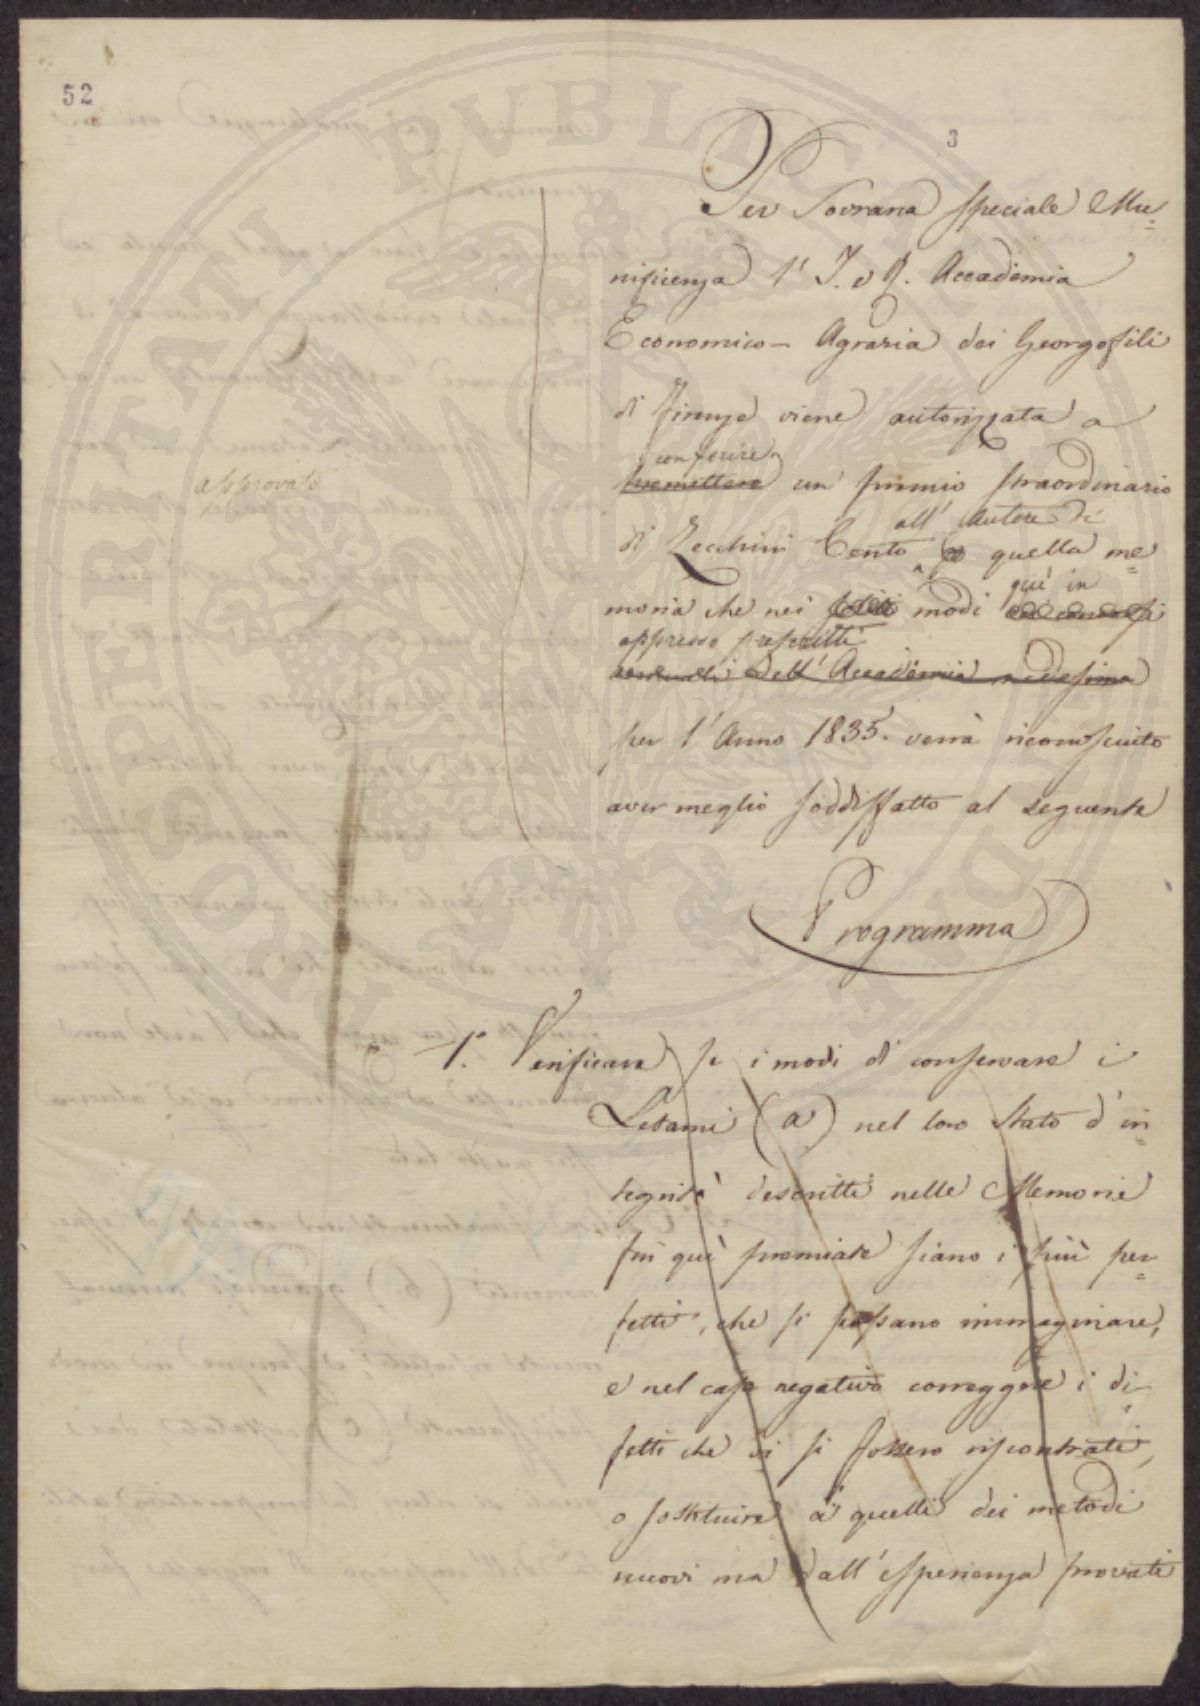 52
3
Per Sovrana speciale Mu=
nificenza l' I. e R. Accademia
Economico-Agraria dei Georgofili
di Firenze viene autorizzata a
conferire
promettere un premio straordinario
all' Autore di
di Zecchini Cento quella me=
qui in
moria che nei soliti modi
appresso prescritti
dell' Accademia medesima
per l'Anno 1835. verrà riconosciuto
aver meglio soddisfatto al seguente
approvato
Programma
1.° Verificare se i modi di conservare i
Letami (a) nel loro stato d'in=
tegrità descritti nelle Memorie
fin quì premiate siano i più per=
fetti, che si possano immaginare,
e nel caso negativo correggere i di=
fetti che vi si fossero riscontrati,
o sostituire a quelli dei metodi
nuovi ma dall'esperienza provati
PROSPERITATI PVBLICAE